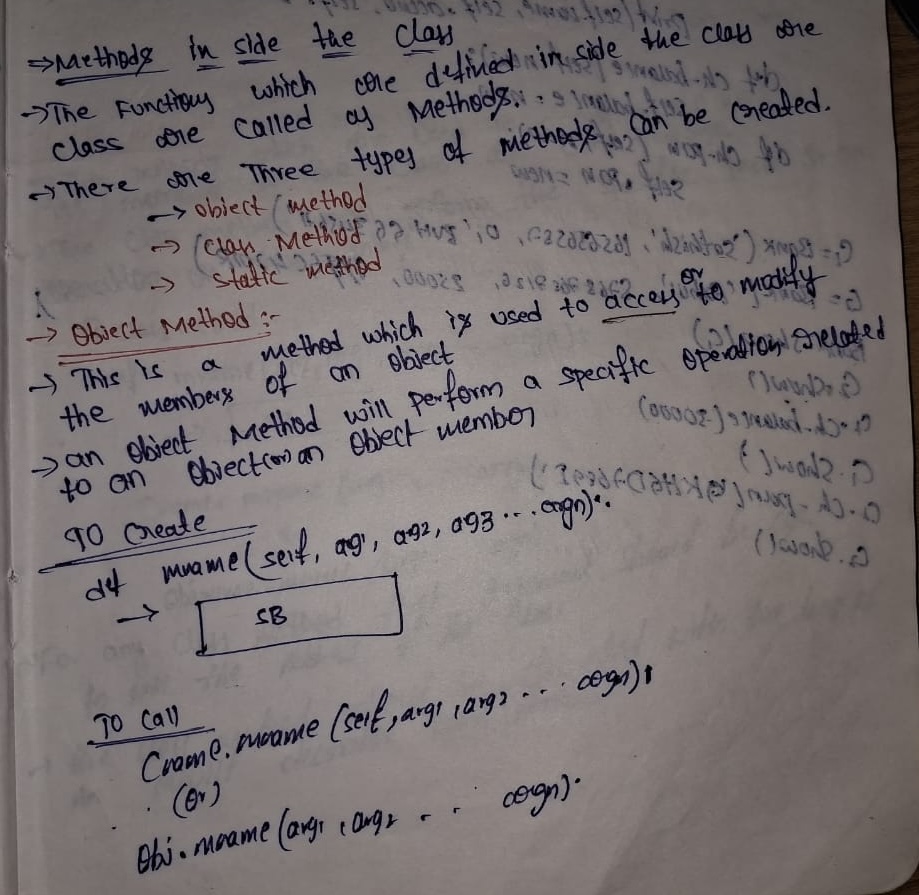 ⇒Methods in side the class
→The Functions which are defined in side the class are
class are called as Methods.
→There are Three types of methods can be created.
→ object method
→ class Method
→ static method
→ Object Method :-
→ This is a method which is used to access or to modify
the members of an object
→ an object Method will perform a specific operation related
to an object(or) an object member
TO Create
def mname(self, ag1, ag2, ag3 ... argn):
→ SB
TO Call
Cname.mname (self, arg1, arg2 ... argn):
(Or)
Obj.mname (arg1, arg2 ... argn).